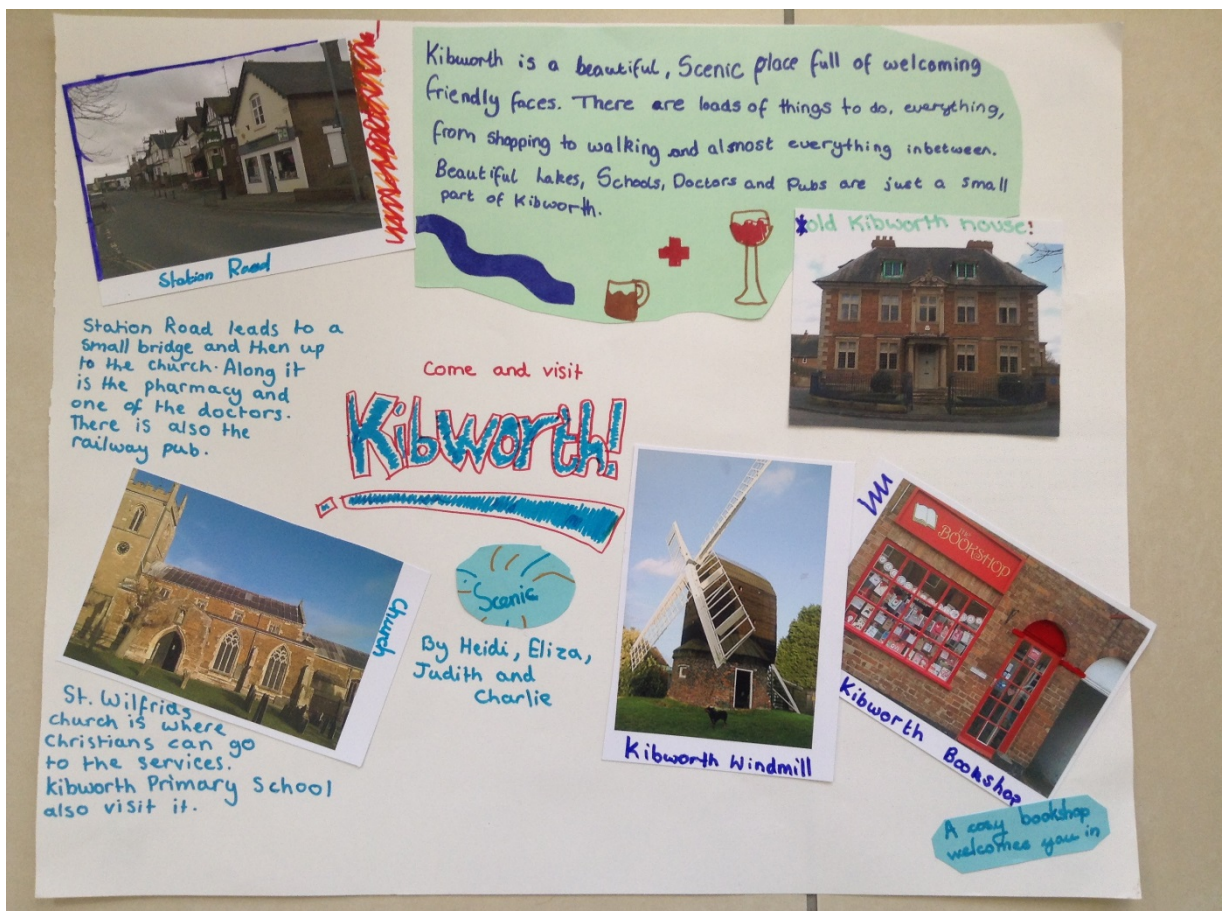 Kibworth is a beautiful, Scenic place full of welcoming
friendly faces. There are loads of things to do, everything,
from shopping to walking and almost everything inbetween.
Beautiful Lakes, Schools, Doctors and Pubs are just a small
part of Kibworth.
Station Road
old Kibworth house!
Station Road leads to a
small bridge and then up
to the church. Along it
is the pharmacy and
one of the doctors.
There is also the
railway pub.
Come and visit
Kibworth!
Church
Scenic
By Heidi, Eliza,
Judith and
Charlie
St. Wilfrids
church is where
Christians can go
to the services.
Kibworth Primary School
also visit it.
Kibworth Windmill
The
BOOKSHOP
Kibworth Bookshop
A cosy bookshop
welcomes you in